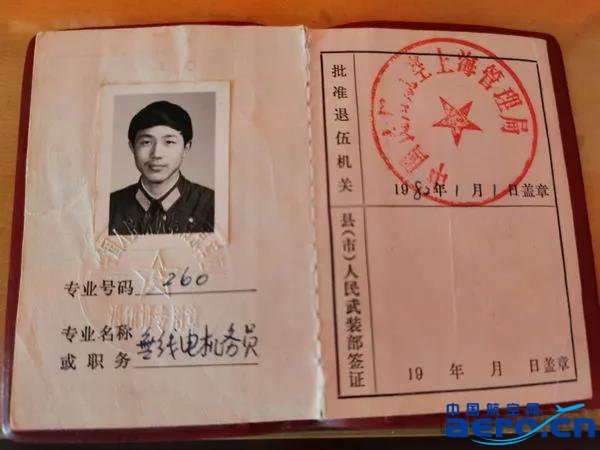 专业号码 260
专业名称
或职务 無线电机务员
批准退伍机关
上海管理局
1982年1月1日盖章
县(市)人民武装部签证
19 年 月 日盖章
中国航空网
aero.cn